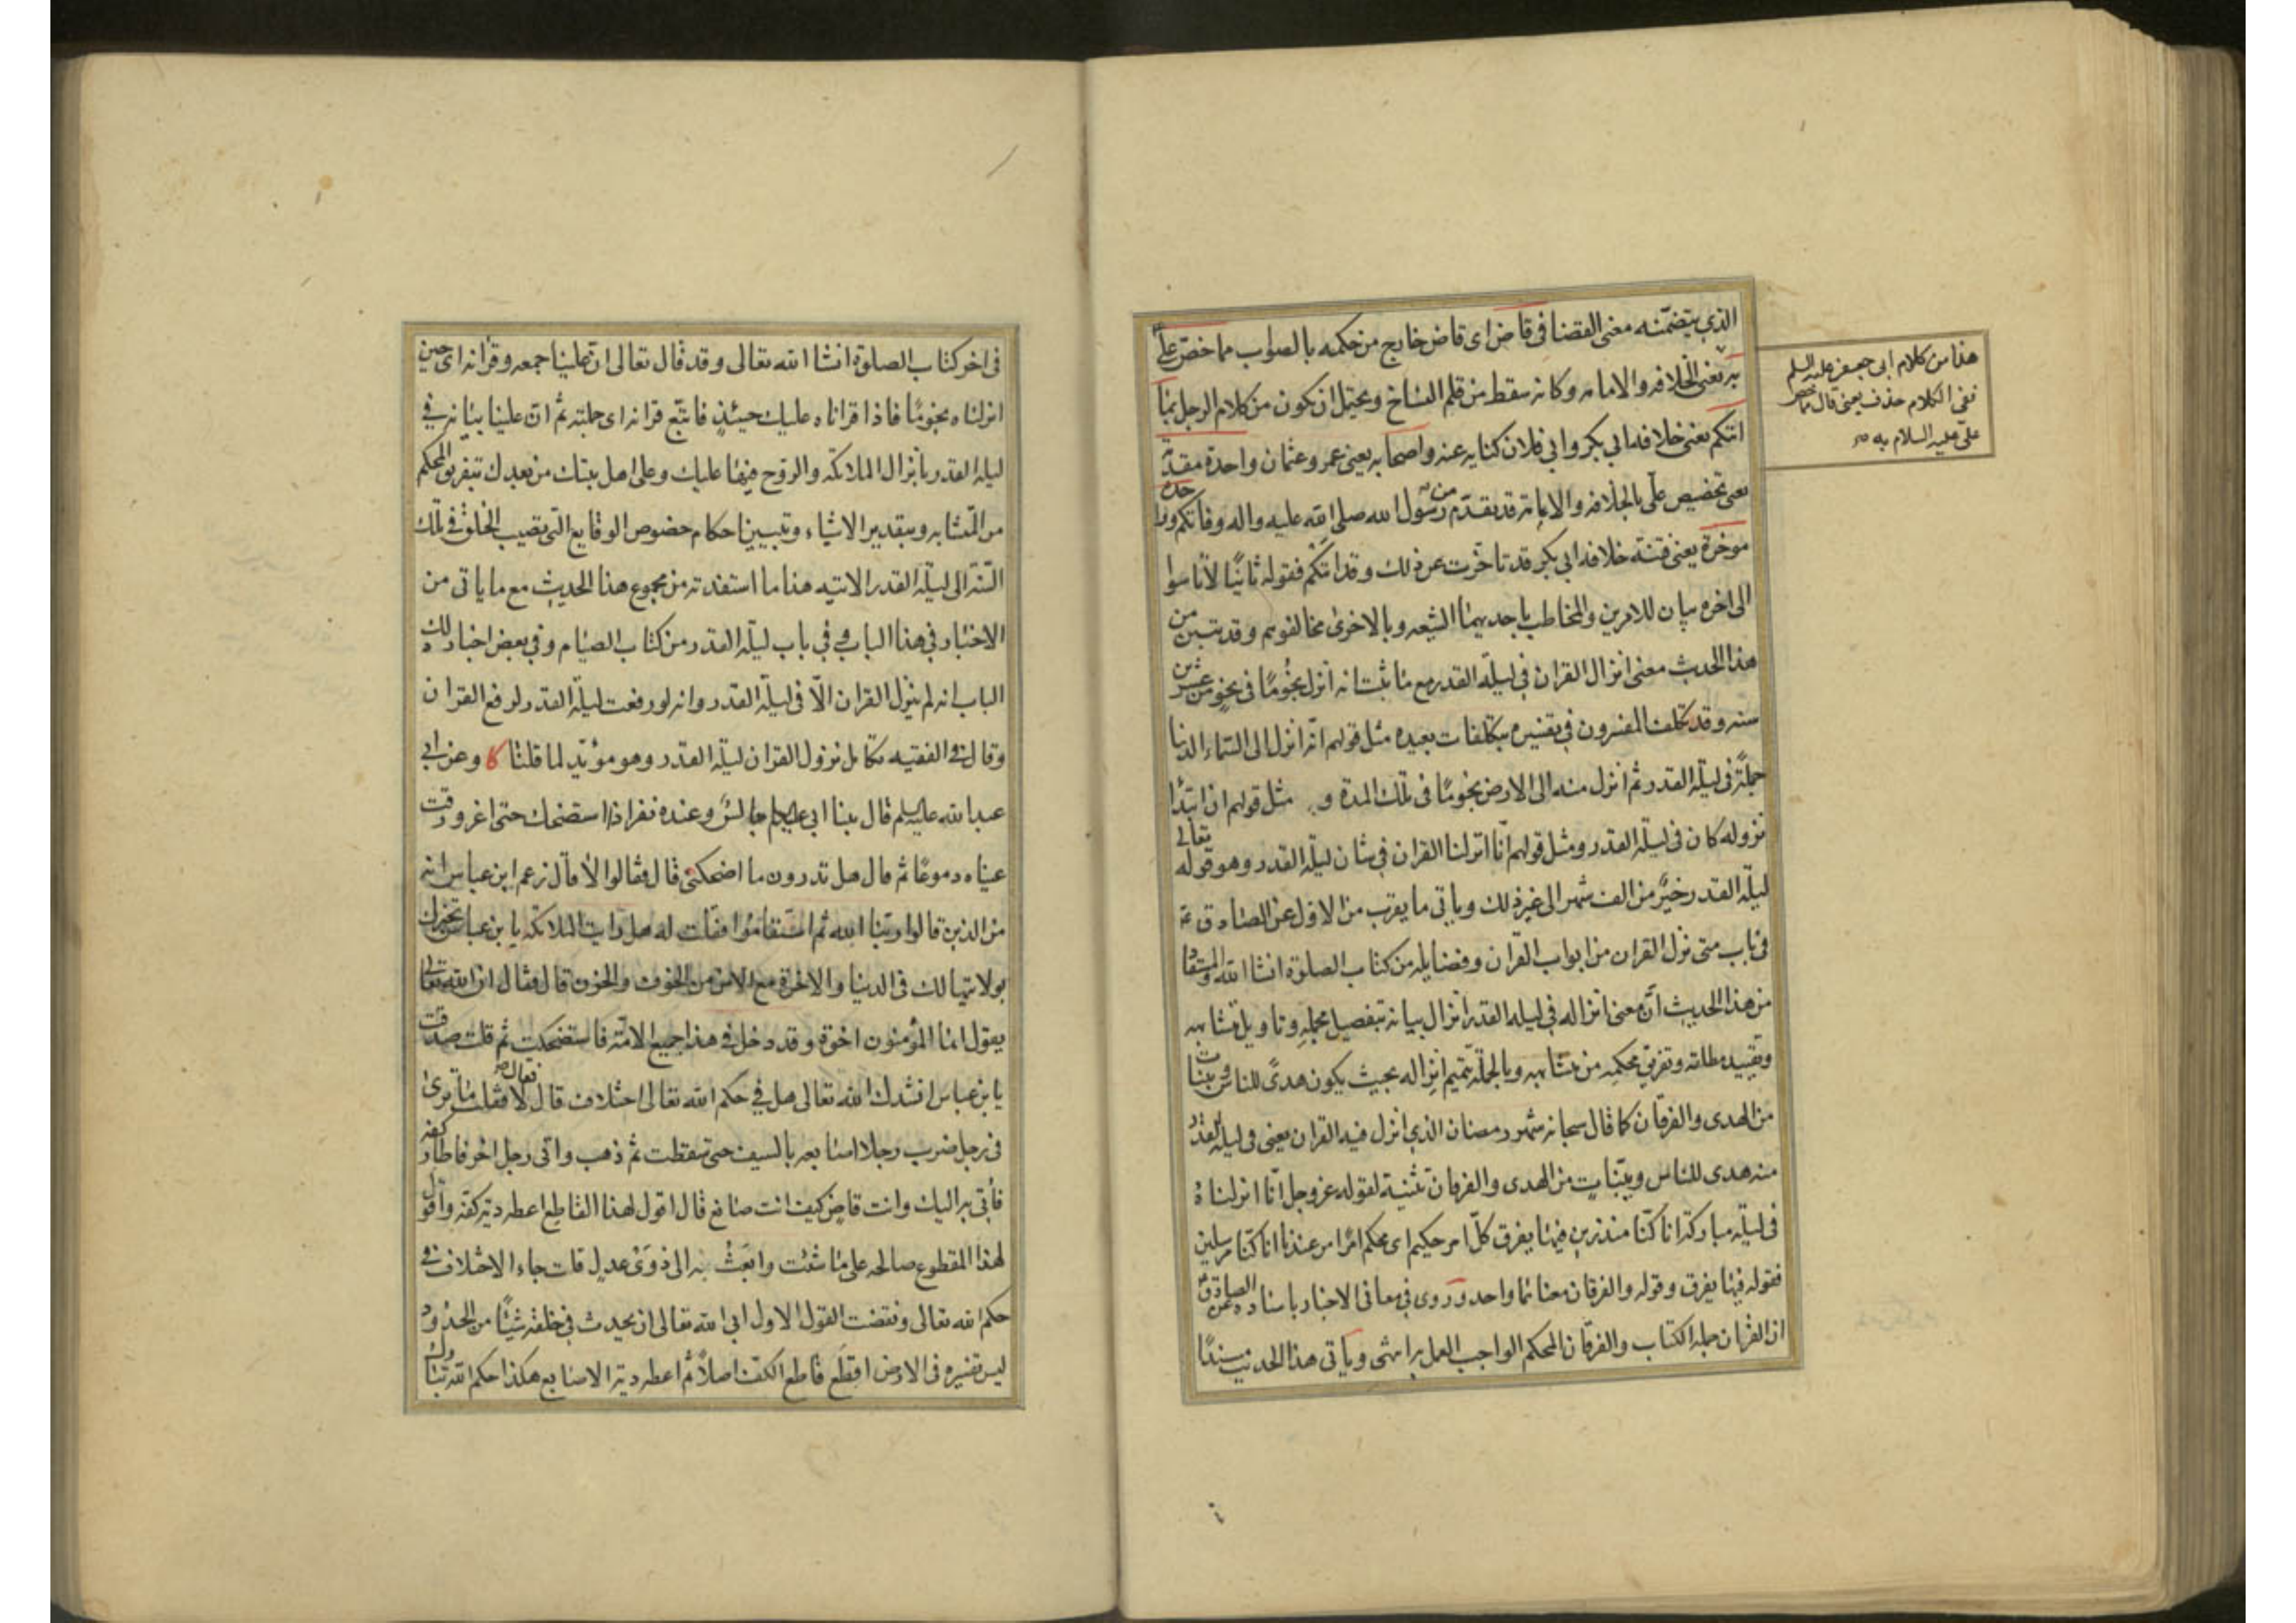 الذي يتضمنه معنى القضا في قاض اى قاض خارج من حكمه بالصواب مما خص علىّ
به يعنى الخلافه والامامه وكانه سقط من قلم النساخ ويحتمل ان يكون من كلام الرجل بما
اتتكم يعنى خلافه ابى بكر وابى فلان كنايه عنه واصحابه يعنى عمر وعثمان واحدة مقدمة
يعنى تخصيص على بالخلافه والامامة قد تقدم من رسول الله صلى الله عليه واله وفاتكم وواحدة
موخرة يعنى فتنة خلافه ابى بكر قد تاخرت عن ذلك وقد اتتكم فقوله ثانيًا لا تاسوا
الى اخره بيان للامرين والمخاطب باحديهما الشيعه وبالاخرى مخالفوهم وقد تبين من
هذا الحديث معنى انزال القران فى ليلة القدر مع ما ثبت انه انزل نجومًا فى نحو من عشرين
سنه وقد تكلف المفسرون فى تفسيره بتكلفات بعيده مثل قولهم انه انزل الى السماء الدنيا
جملةً فى ليلة القدر ثم انزل منه الى الارض نجومًا فى تلك المدة و مثل قولهم ان ابتدا
نزوله كان فى ليلة القدر ومثل قولهم انا انزلنا القران فى شان ليلة القدر وهو قوله تعالى
ليلة القدر خيرٌ من الف شهر الى غير ذلك وياتى ما يقرب من الاول عن الصادق ع
فى باب متى نزل القران من ابواب القران وفضايله من كتاب الصلوة انشا الله والمستفاد
من هذا الحديث ان معنى انزاله فى ليلة القدر انزال بيانه بتفصيل مجمله وتاويل متشابهه
وتقييد مطلقه وتفريق محكمه من متشابهه وبالجملة تتميم انزاله بحيث يكون هدىً للناس وبينات
من الهدى والفرقان كما قال سبحانه شهر رمضان الذى انزل فيه القران يعنى فى ليلة القدر
منه هدى للناس وبيّنات من الهدى والفرقان تثنية لقوله عز وجل انا انزلناه
فى ليلة مباركة انا كنا منذرين فيها يفرق كل امر حكيم اى محكم امرًا من عندنا انا كنا مرسلين
فقوله فيها يفرق وقوله والفرقان معناهما واحد وروى فى معانى الاخبار باسناده عن الصادق ع
ان القران جملة الكتاب والفرقان المحكم الواجب العمل به انتهى وياتى هذا الحديث مسندًا
هذا من كلام ابى جعفر عليه السلم
ففى الكلام حذف يعنى قال مما خص
على عليه السلام به
فى اخر كتاب الصلوة انشا الله تعالى وقد قال تعالى ان علينا جمعه وقرانه اى حين
انزلناه نجومًا فاذا قراناه عليك حينئذٍ فاتبع قرانه اى جملته ثم ان علينا بيانه فى
ليلة القدر بانزال الملائكة والروح فيها عليك وعلى اهل بيتك من بعدك بتفريق المحكم
من المتشابه وبتقدير الاشياء وتبيين احكام خصوص الوقايع التى تصيب الخلق فى تلك
السّنة الى ليلة القدر الاتيه هذا ما استفدته من مجموع هذا الحديث مع ما ياتى من
الاخبار فى هذا الباب وفى باب ليلة القدر من كتاب الصيام وفى بعض اخبار ذلك
الباب انه لم ينزل القران الّا فى ليلة القدر وانه لو رفعت ليلة القدر لرفع القران
وقال فى الفقيه تكامل نزول القران ليلة القدر وهو مؤيّد لما قلنا كا وعن ابى
عبد الله عليه السلم قال بينا ابى عليه السلام جالسٌ وعنده نفر اذا استضحك حتى اغرورقت
عيناه دموعًا ثم قال هل تدرون ما اضحكنى قال فقالوا لا قال زعم ابن عباس انه
من الذين قالوا ربنا الله ثم استقاموا فقلت له هل رايت الملائكة يا بن عباس تخبرك
بولايتها لك فى الدنيا والاخرة مع الامن من الخوف والحزن قال فقال ان الله تعالى
يقول انما المؤمنون اخوة وقد دخل فى هذا جميع الامّة فاستضحكت ثم قلت صدقت
يا بن عباس انشدك الله تعالى هل فى حكم الله تعالى اختلاف قال فقال لا فقلت ما ترى
فى رجل ضرب رجلا اصابعه بالسيف حتى سقطت ثم ذهب واتى رجل اخر فاطار كفه
فأتى به اليك وانت قاضٍ كيف انت صانع قال اقول لهذا القاطع اعطه دية كفه واقول
لهذا المقطوع صالحه على ما شئت وابعث به الى ذوى عدل قلت جاء الاختلاف فى
حكم الله تعالى ونقضت القول الاول ابى الله تعالى ان يحدث فى خلقه شيئًا من الحدود
ليس تفسيره فى الارض اقطع قاطع الكف اصلًا ثم اعطه دية الاصابع هكذا حكم الله تبارك